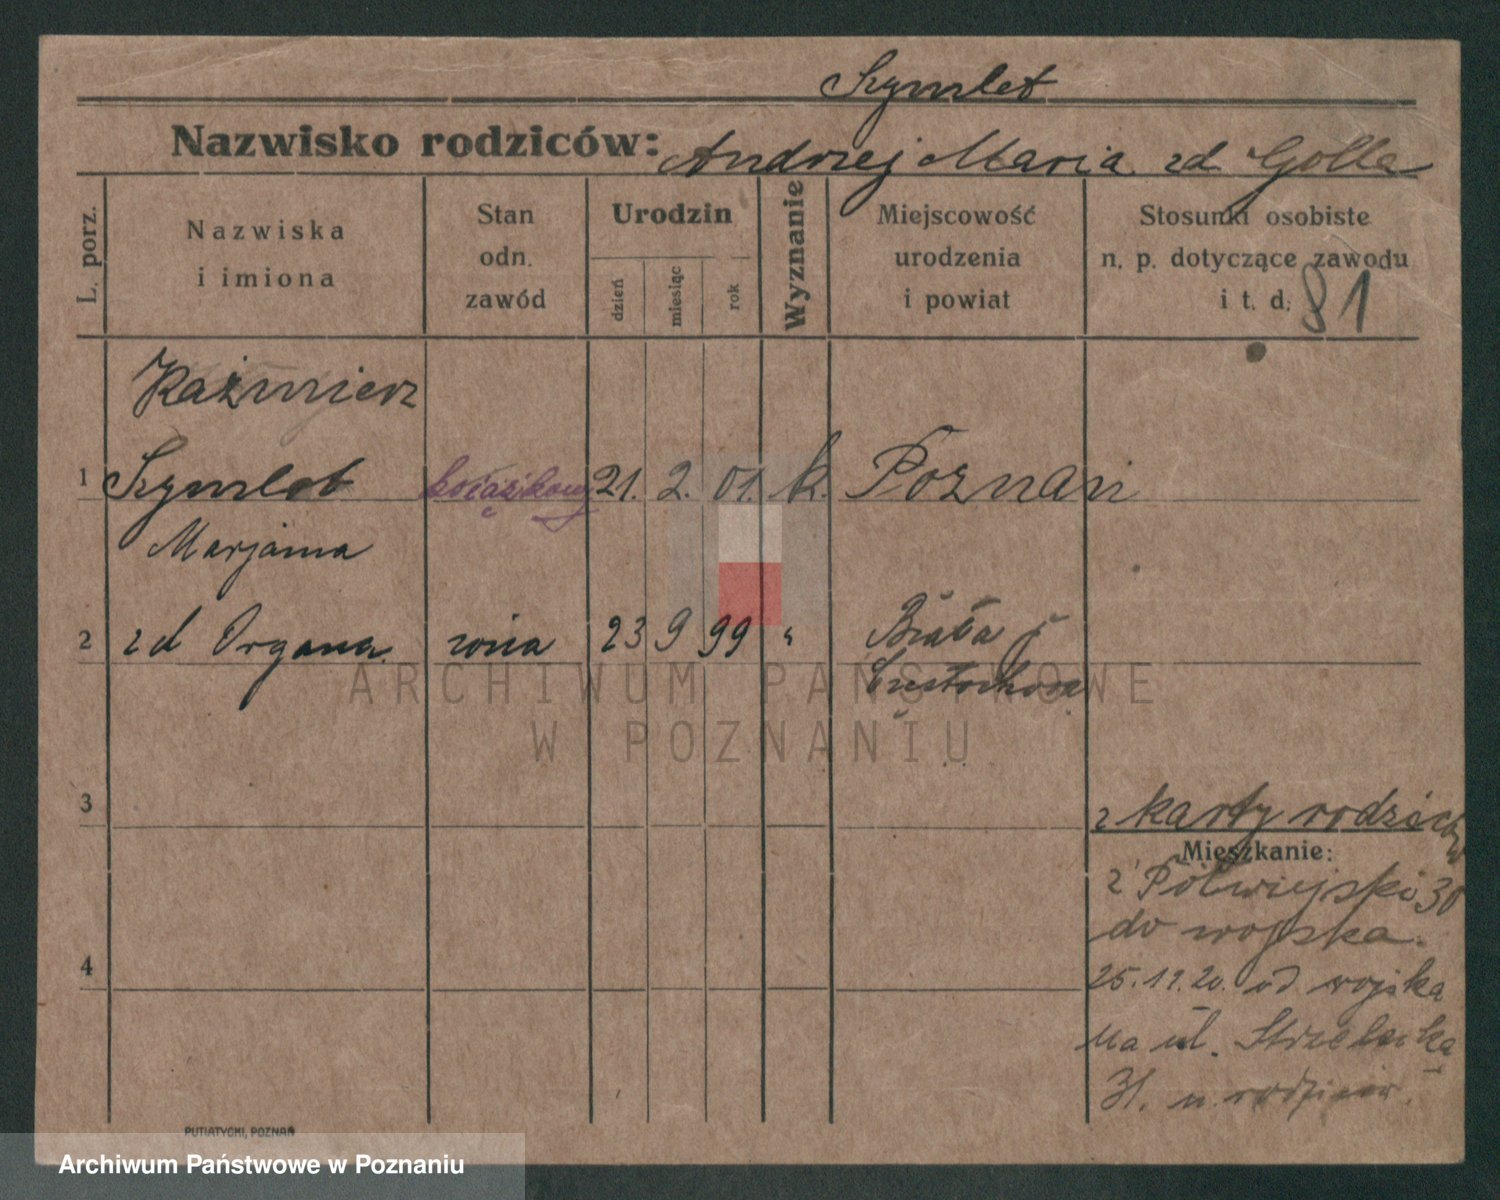 Szymlet
Nazwisko rodziców: Andrzej Maria zd. Golla
L. porz.
Nazwiska
i imiona
Stan
odn.
zawód
Urodzin
dzień
miesiąc
rok
Wyznanie
Miejscowość
urodzenia
i powiat
Stosunki osobiste
n. p. dotyczące zawodu
i t. d.
81
Kaźmierz
1 Szymlet 21. 2. 01. k. Poznań
Marjanna
2 zd Organa 23 9 99 " Biała
Częstochowa
3
z karty rodziców
Mieszkanie:
z Półwiejski 30
do wojska.
4
25.19.20. od wojska
na ul. Strzelecką
31. u rodziców.
PUTIATYCKI, POZNAŃ
ARCHIWUM PAŃSTWOWE
W POZNANIU
Archiwum Państwowe w Poznaniu